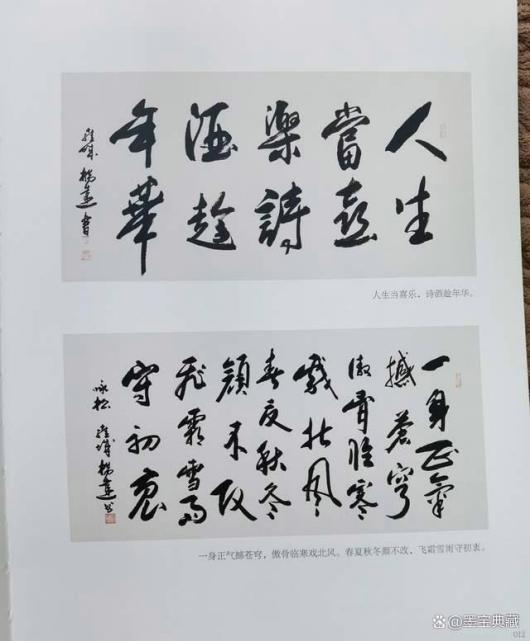 人生
當喜
樂詩
酒趁
年華
雍城 楊 書
人生当喜乐，诗酒趁年华。
一身正氣
撼蒼穹
傲骨臨寒
戲北風
春夏秋冬
顏不改
飛霜雪雨
守初衷
咏松 雍城 楊 书
一身正气撼苍穹，傲骨临寒戏北风。春夏秋冬颜不改，飞霜雪雨守初衷。
@墨宝典藏